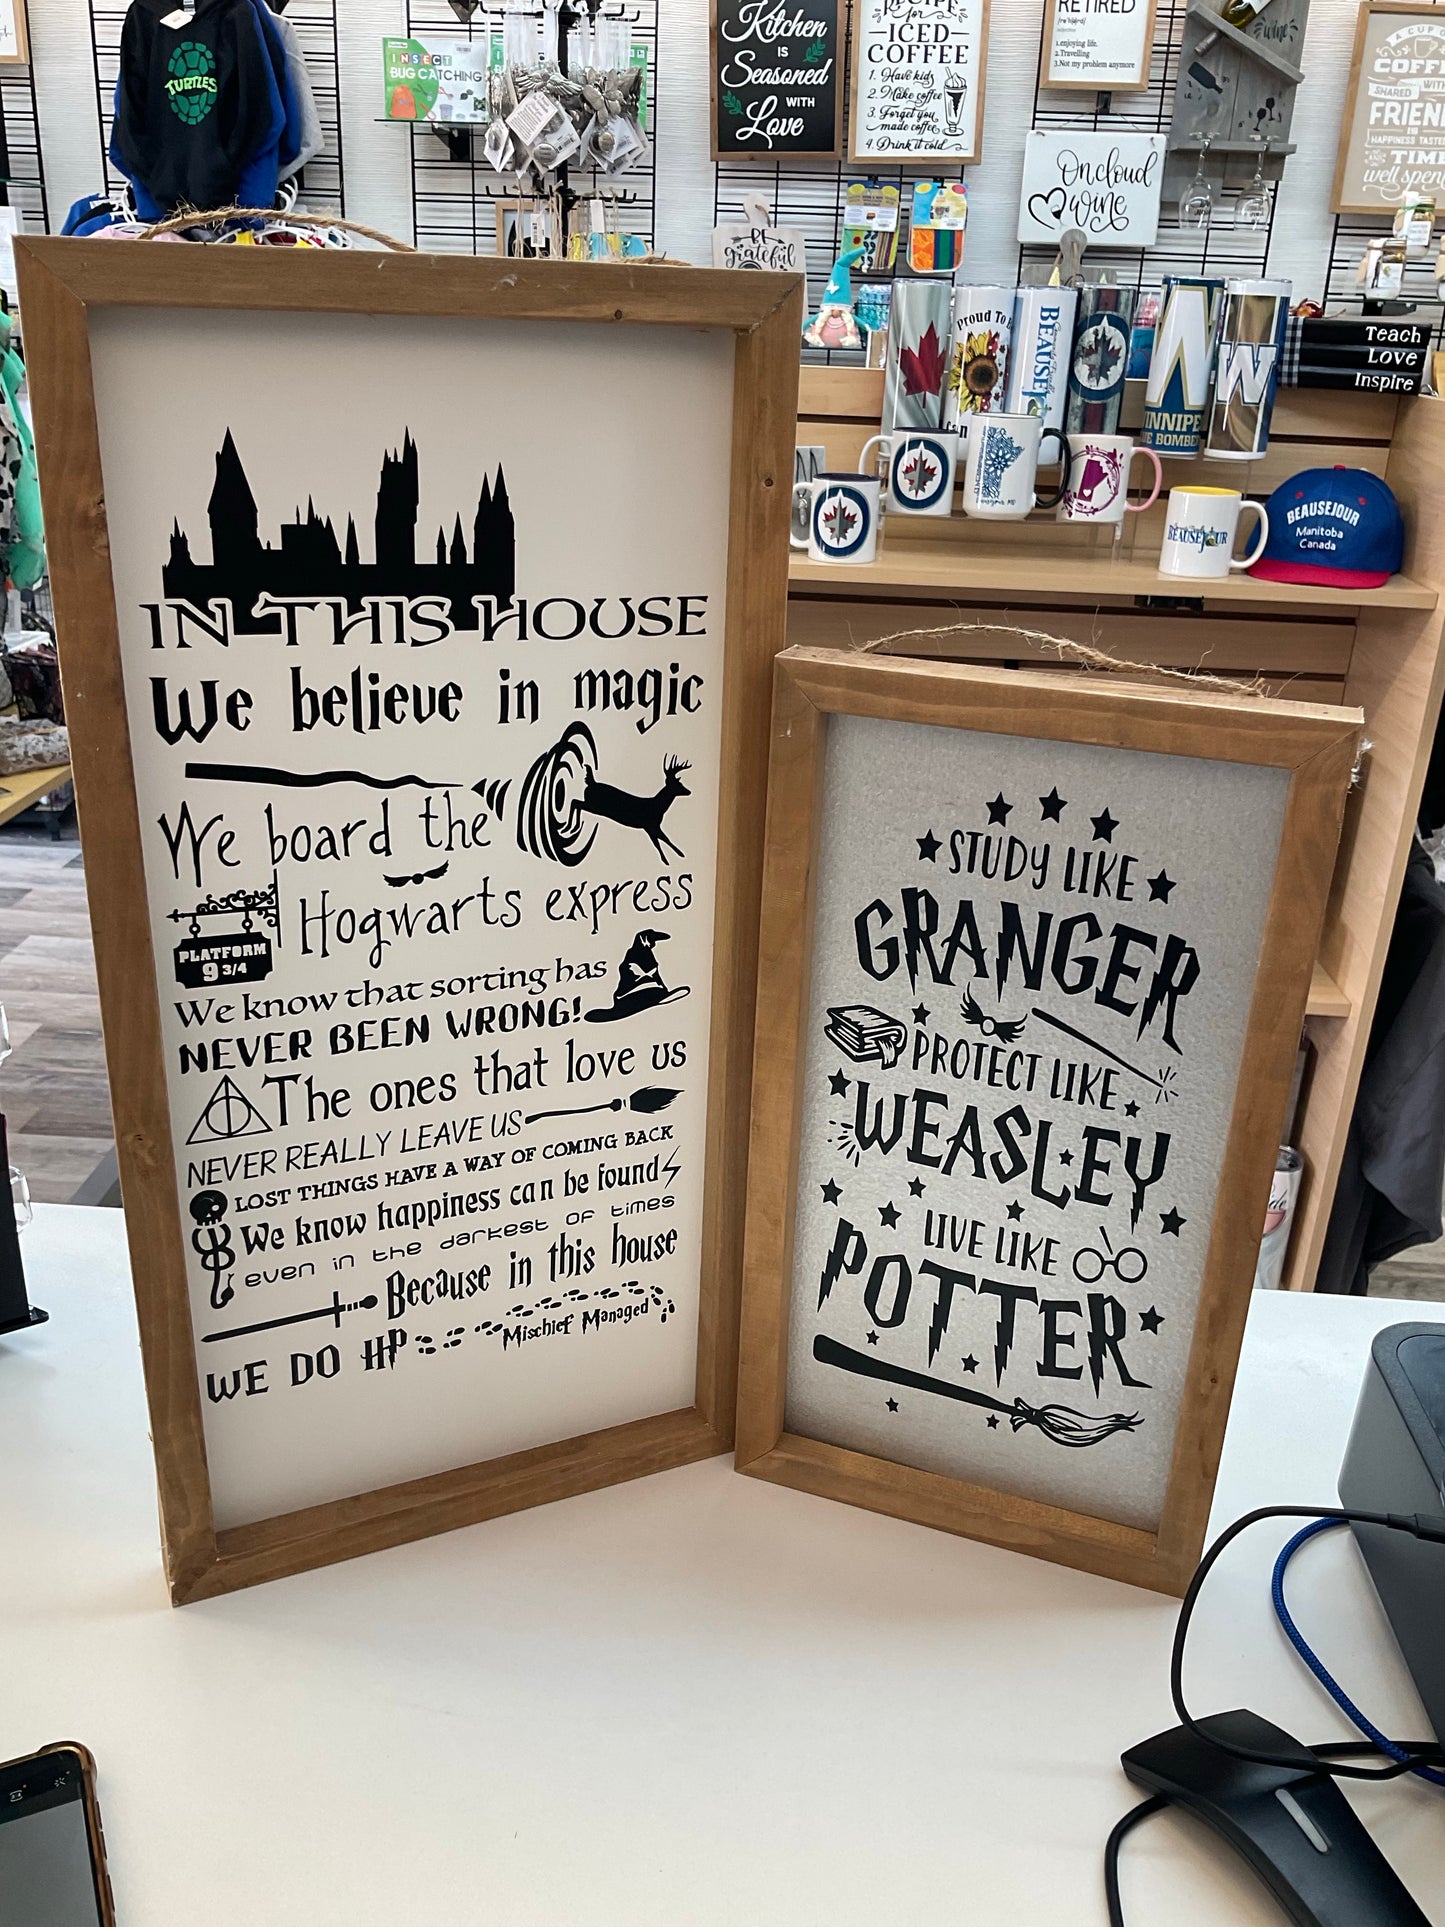 TURTLES
INSECT
BUG CATCHING
Kitchen
IS
Seasoned
WITH
Love
RECIPE
for
ICED
COFFEE
1. Have kids
2. Make coffee
3. Forget you
made coffee
4. Drink it cold
RETIRED
1.enjoying life.
2.Travelling
3.Not my problem anymore
wine
On cloud
wine
A CUP OF
COFFEE
SHARED WITH
FRIEND
IS
HAPPINESS TASTED
AND TIME
well spent
BE
grateful
Proud To Be
BEAUSEJOUR
WINNIPEG
BLUE BOMBERS
W
Teach
Love
Inspire
BEAUSEJOUR
BEAUSEJOUR
Manitoba
Canada
IN THIS HOUSE
We believe in magic
We board the
Hogwarts express
PLATFORM
9 3/4
We know that sorting has
NEVER BEEN WRONG!
The ones that love us
NEVER REALLY LEAVE US
LOST THINGS HAVE A WAY OF COMING BACK
We know happiness can be found
even in the darkest of times
Because in this house
WE DO HP
Mischief Managed
STUDY LIKE
GRANGER
PROTECT LIKE
WEASLEY
LIVE LIKE
POTTER